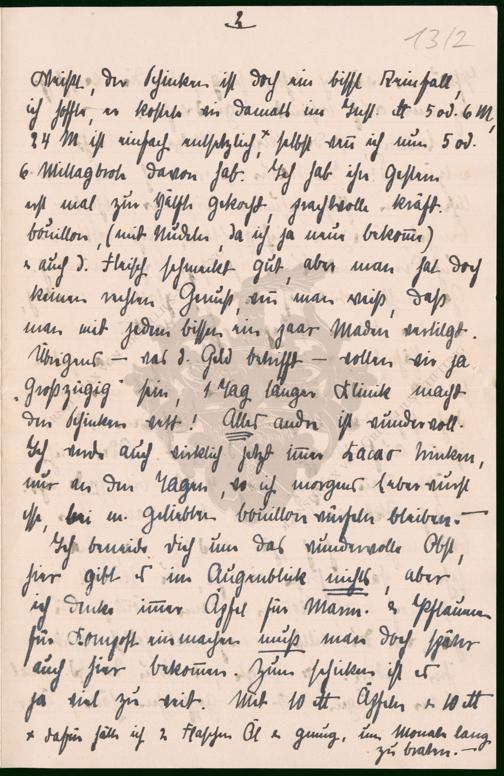 2
13/2
Weißt, der Schinken ist doch ein bissl Reinfall,
ich hoffte, er kostete wie damals im Inst. 5 od. 6 M,
24 M ist einfach entsetzlich,* selbst wenn ich nun 5 od.
6 Mittagbrote davon hab. Ich hab ihn gestern
erst mal zur Hälfte gekocht, prachtvolle kräft.
bouillon, (mit Nudeln, da ich ja neue bekomm)
& auch d. Fleisch schmeckt gut, aber man hat doch
keinen rechten Genuß, wenn man weiß, daß
man mit jedem bissen ein paar Maden vertilgt.
Übrigens – was d. Geld betrifft – wollen wir ja
„großzügig" sein, 1 Tag länger Klinik macht
den Schinken wett! Alles andre ist wundervoll.
Ich werde auch wirklich jetzt immer Kacao trinken,
nur an den Tagen, wo ich morgens leberwurst
esse, bei m. geliebten bouillonwürfeln bleiben. –
Ich beneide Dich um das wundervolle Obst,
hier gibt es im Augenblick nichts, aber
ich denke immer Äpfel für Marm. & Pflaumen
für Kompott einmachen muß man doch später
auch hier bekommen. Zum schicken ist es
ja viel zu weit. Mit 10 ℔ Äpfeln & 10 ℔
* dafür hätt ich 2 Flaschen Öl & genug, um Monate lang
zu braten. –